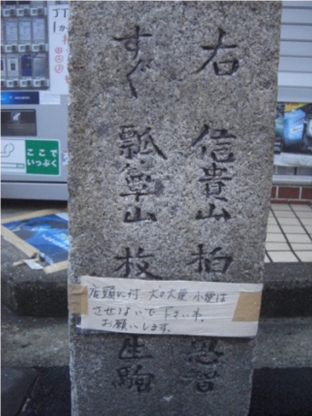 右 信貴山 柏
すぐ 瓢箪山 枚 生駒
店頭に付 犬の大便 小便は
させないで下さい。
お願いします。
ここで
いっぷく
JT